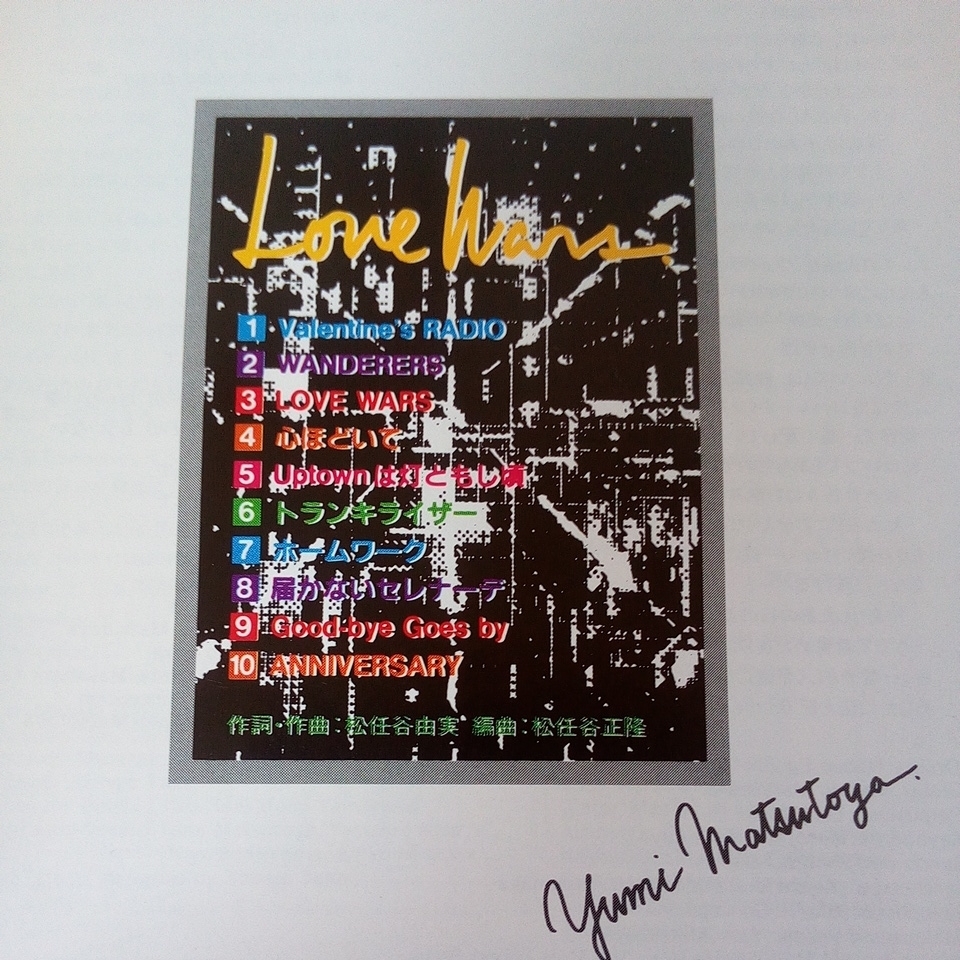 Love Wars.
1 Valentine's RADIO
2 WANDERERS
3 LOVE WARS
4 心ほどいて
5 Uptownは灯ともし頃
6 トランキライザー
7 ホームワーク
8 届かないセレナーデ
9 Good-bye Goes by
10 ANNIVERSARY
作詞・作曲:松任谷由実 編曲:松任谷正隆
Yumi Matsutoya.